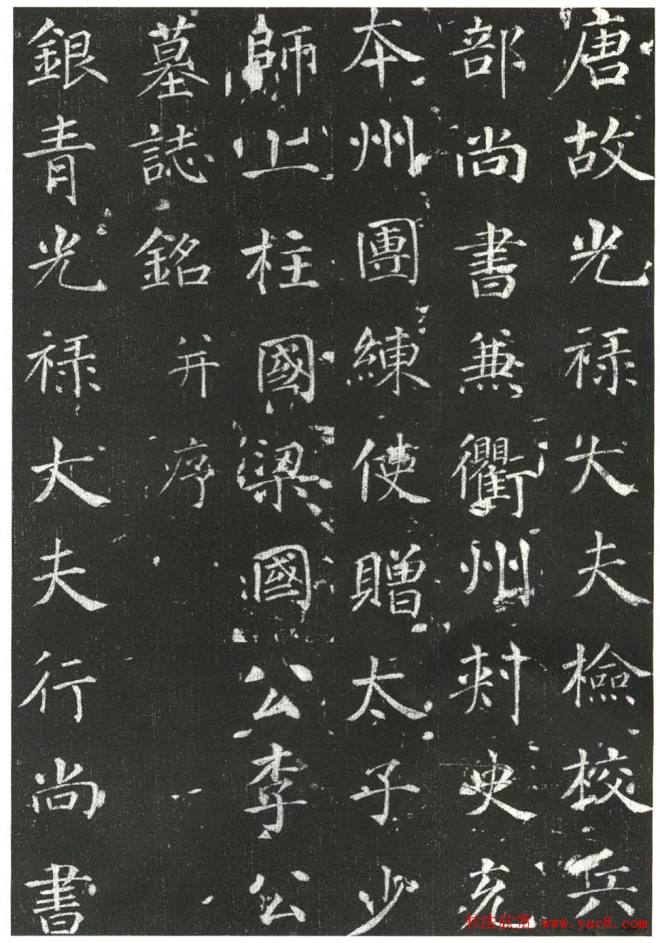 唐故光禄大夫檢校兵
部尚書兼衢州刺史充
本州團練使贈太子少
師上柱國梁國公李公
墓誌銘并序
銀青光禄大夫行尚書
书法欣赏 www.yac8.com